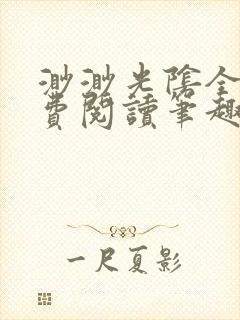 渺渺光陰全
費閱讀筆趣
一尺夏影